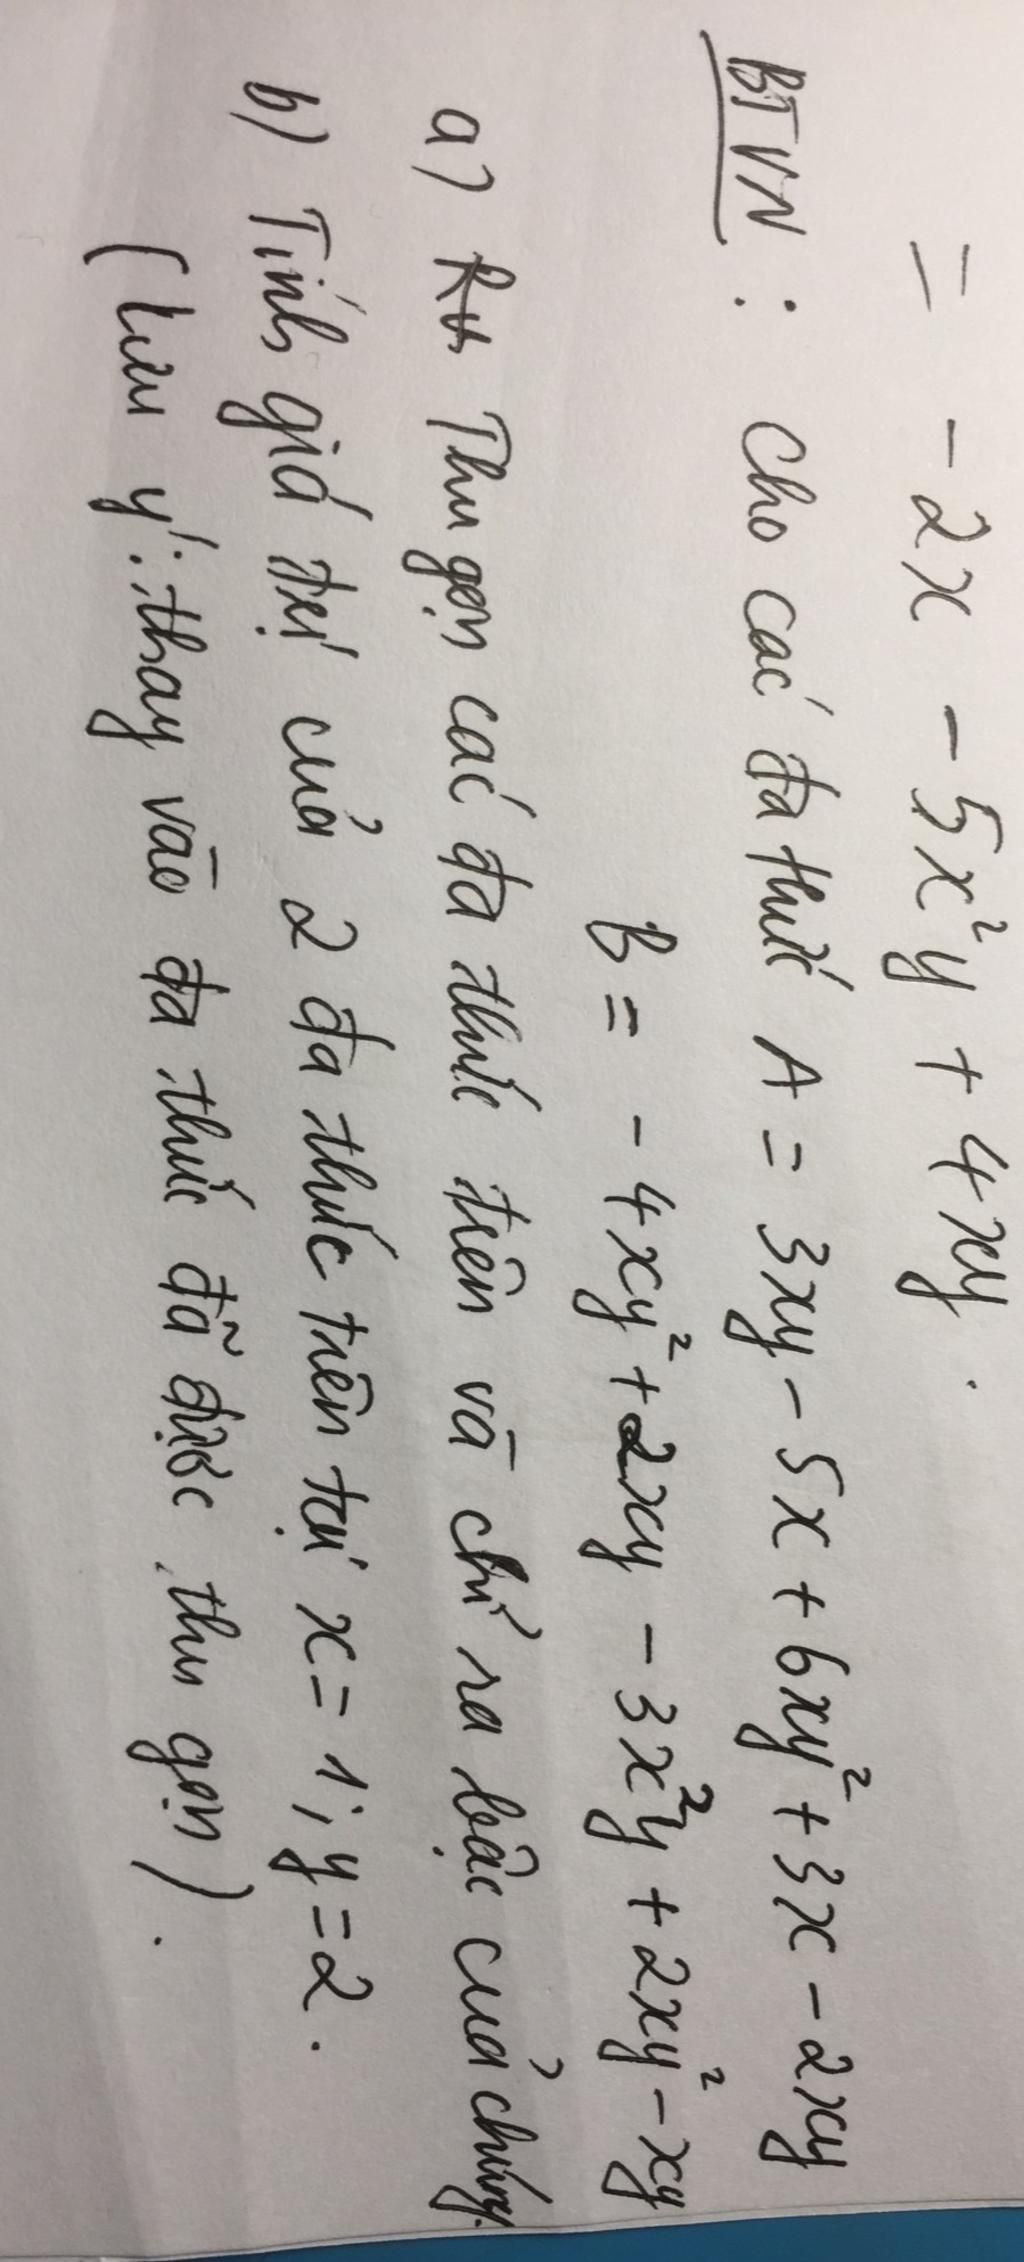 = - 2x - 5x²y + 4xy.
BTVN : Cho các đa thức A = 3xy - 5x + 6xy² + 3x - 2xy
B = - 4xy² + 2xy - 3x²y + 2xy² - xy
a) Thu gọn các đa thức trên và chỉ ra bậc của chúng.
b) Tính giá trị của 2 đa thức trên tại x = 1; y = 2.
(Lưu ý: thay vào đa thức đã được thu gọn).